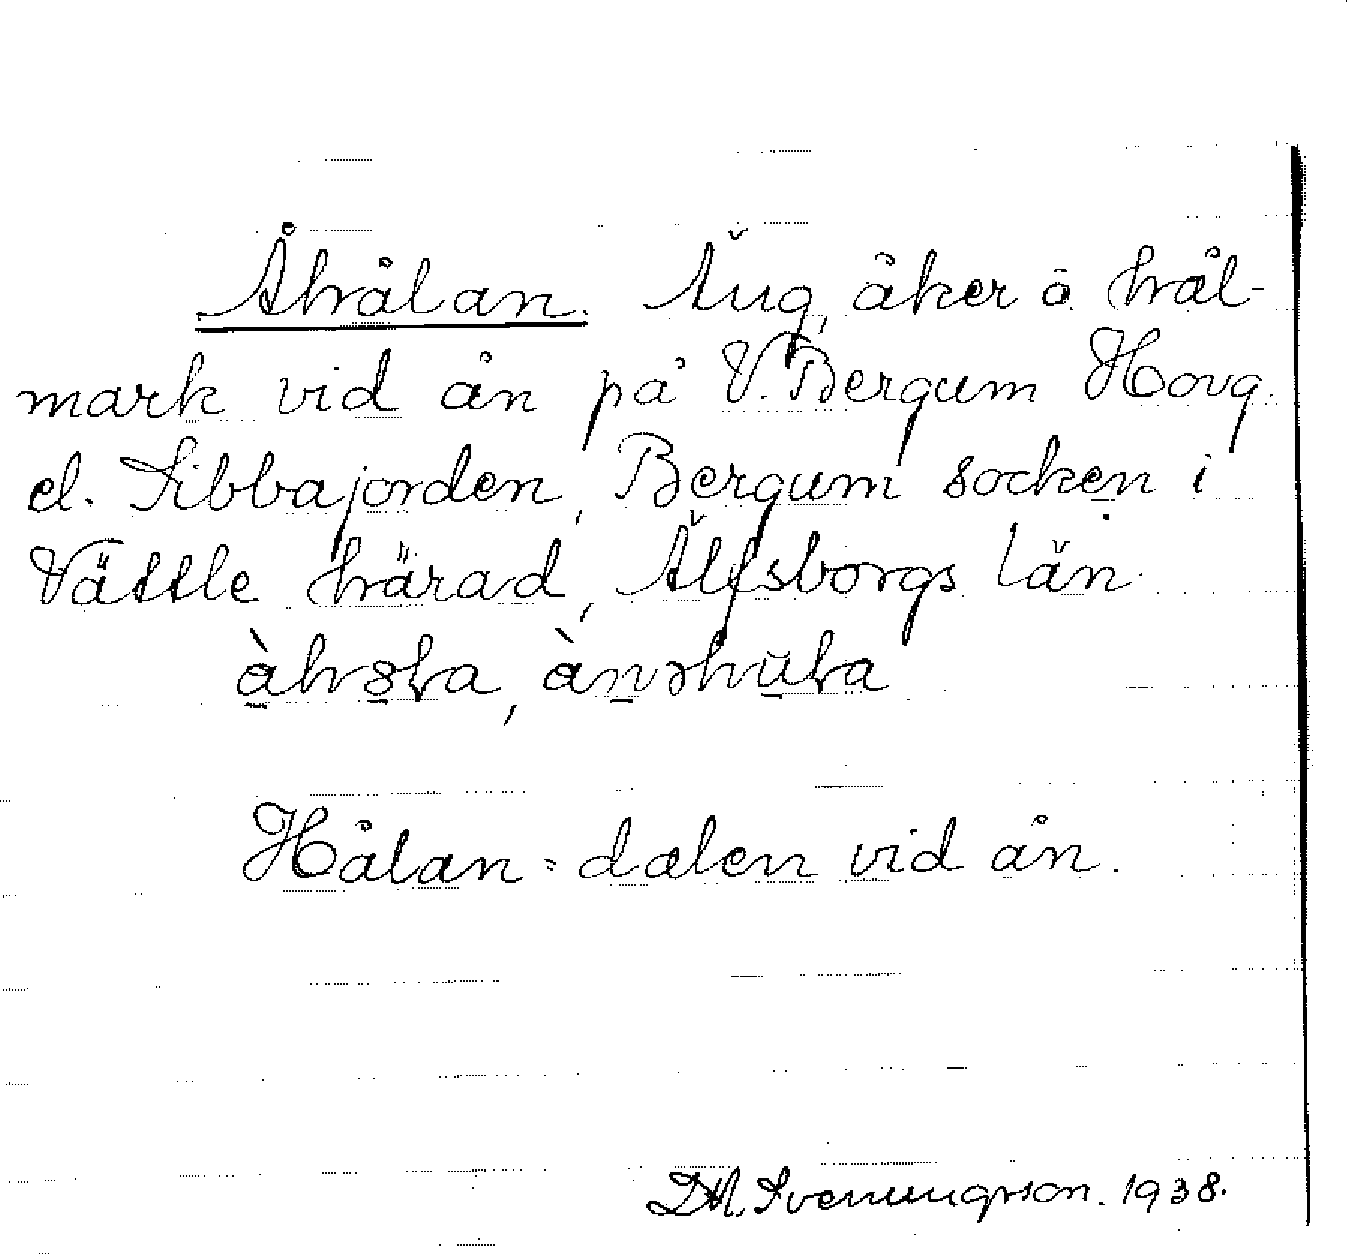 Åhålan. Äng, åker o. hål-
mark vid ån på V. Bergum Hovg.
el. Sibbajorden, Bergum socken i
Vättle härad, Älfsborgs län.
Hålan = dalen vid ån.
D.A. Svenungsson. 1938.